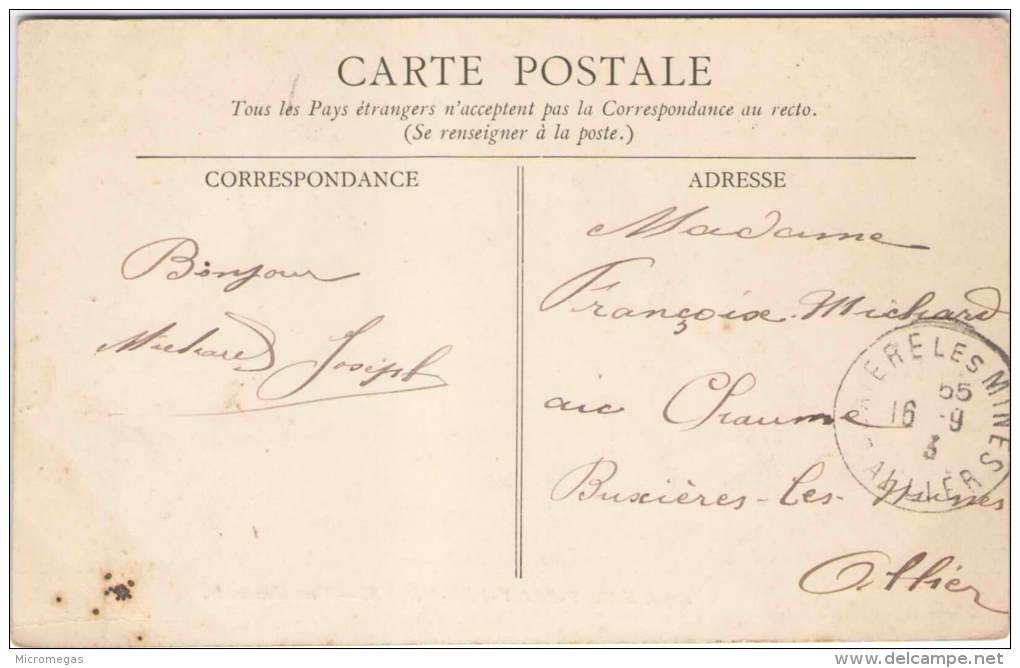 CARTE POSTALE
Tous les Pays étrangers n'acceptent pas la Correspondance au recto.
(Se renseigner à la poste.)
CORRESPONDANCE
Bonjour
Michard Joseph
ADRESSE
Madame
Françoix Michard
aix Chaume
Buxières-les-Mines
Allier
IERE LES MINES
55
16 -9
3
ALLIER
Micromegas
www.delcampe.net